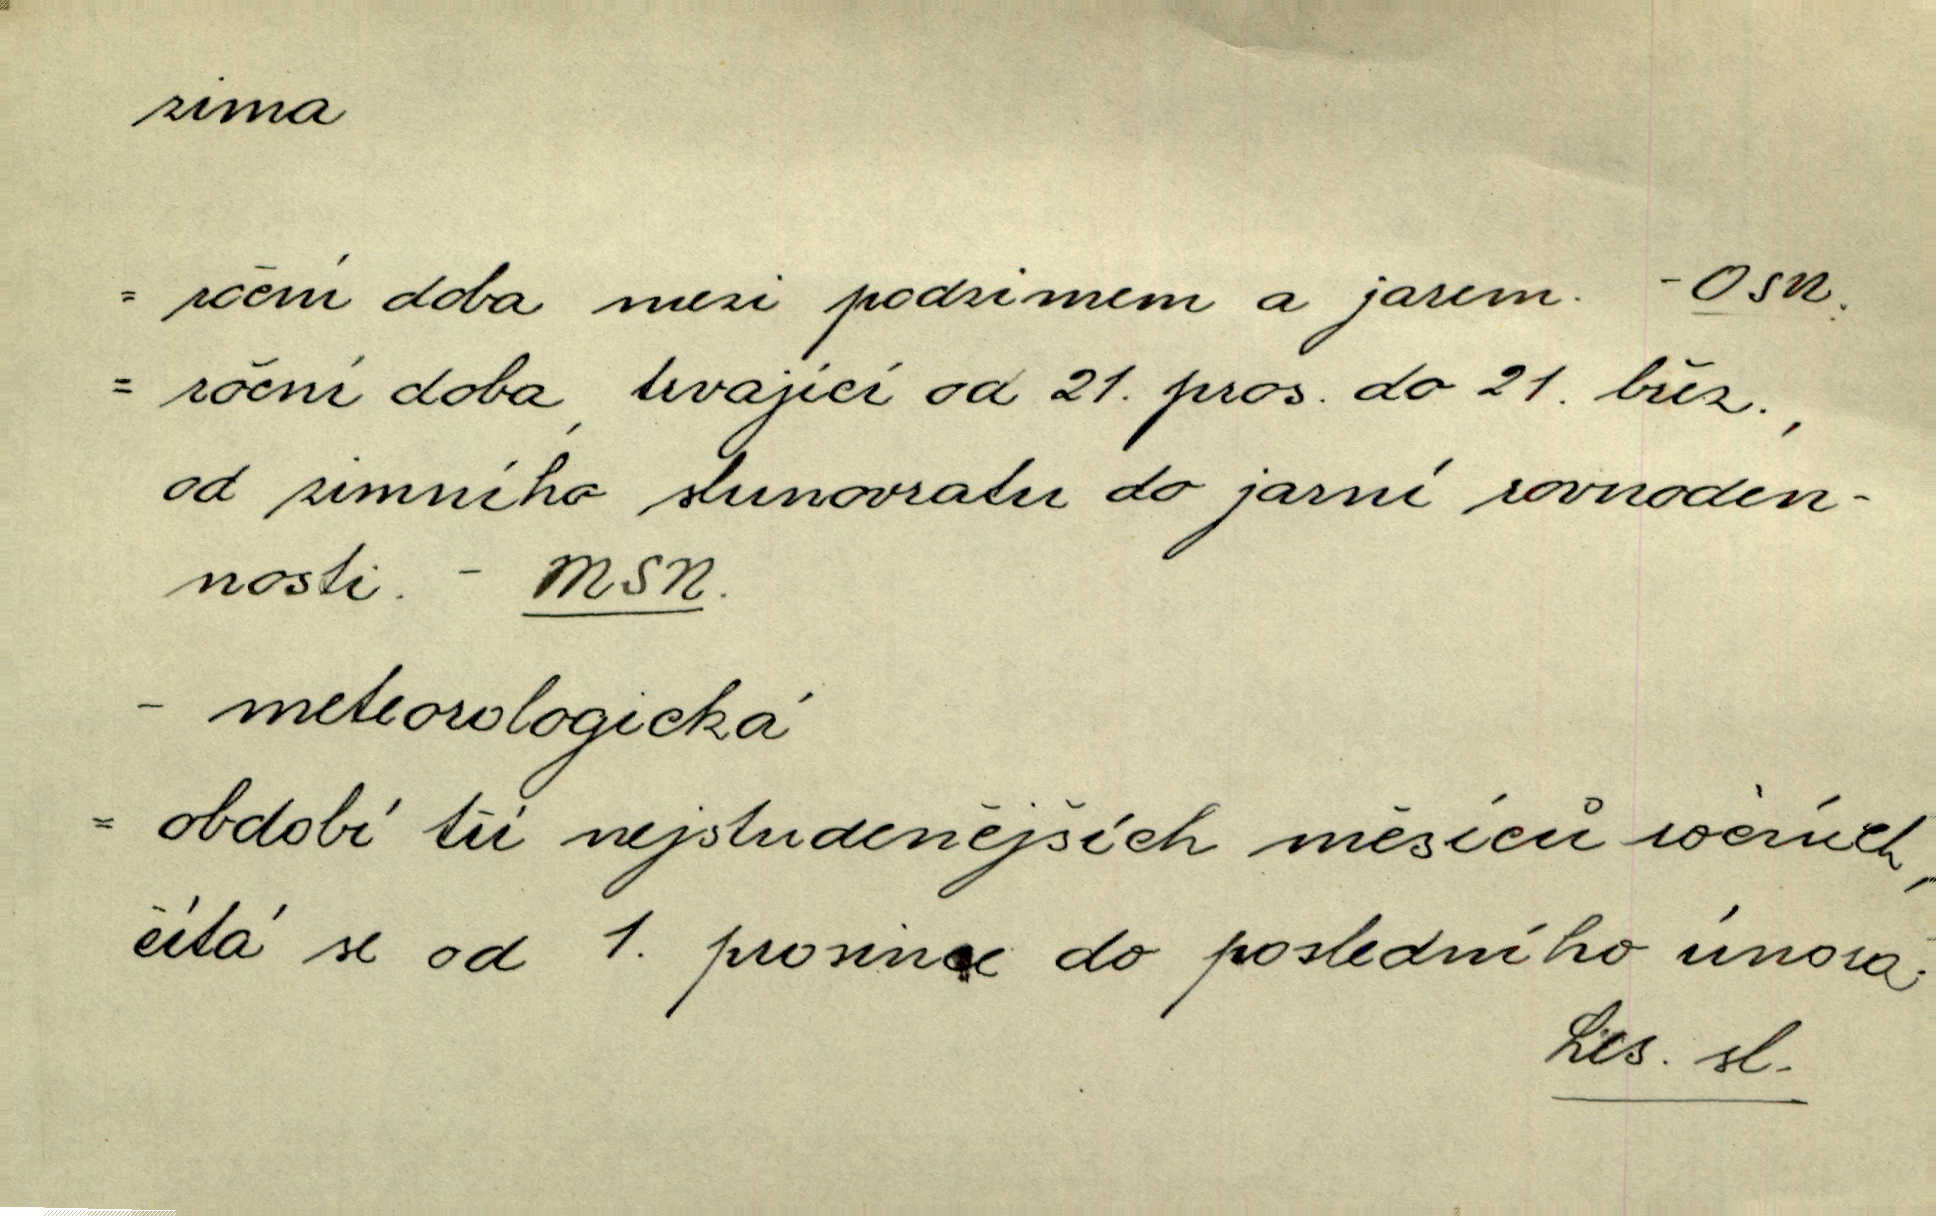 zima
= roční doba mezi podzimem a jarem. - OSN.
= roční doba, trvající od 21. pros. do 21. břez.,
od zimního slunovratu do jarní rovnoden-
nosti. - MSN.
- meteorologická
= období tří nejstudenějších měsíců ročních,
čítá se od 1. prosince do posledního února;
Les. sl.